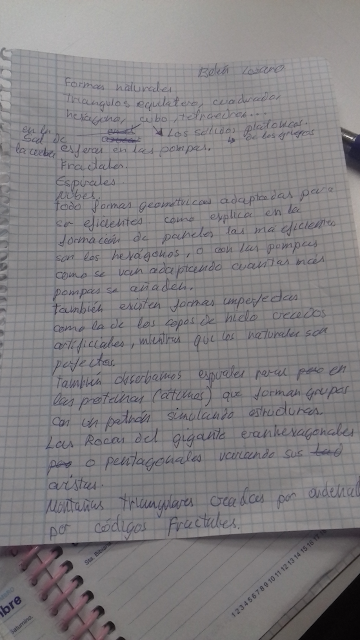 Belén Lozano
Formas naturales
Triangulos equilatero, cuadrados
hexagono, cubo, tetraedros...
en la
sal de
la cocina
→ Los solidos platonicos.
↳ de los griegos
esferas en las pompas.
Fractales
Espirales
Nubes
todo formas geometricas adaptadas para
ser eficientes como explica en la
formación de paneles las ma eficientes
son los hexágonos, o con las pompas
como se van adaptando cuantas mas
pompas se añaden.
También existen formas imperfectas
como la de los copos de hielo creados
artificiales, mientras que los naturales son
perfectos
También observamos espirales para pero en
las proteinas (atomos) que forman grupos
con un patrón simulando estructuras
Las Rocas del gigante eran hexagonales
o pentagonales variando sus
aristas.
Montañas triangulares creadas por ordenal
por códigos Fractales.
bre
1 2 3 4 5 6 7 8 9 10 11 12 13 14 15